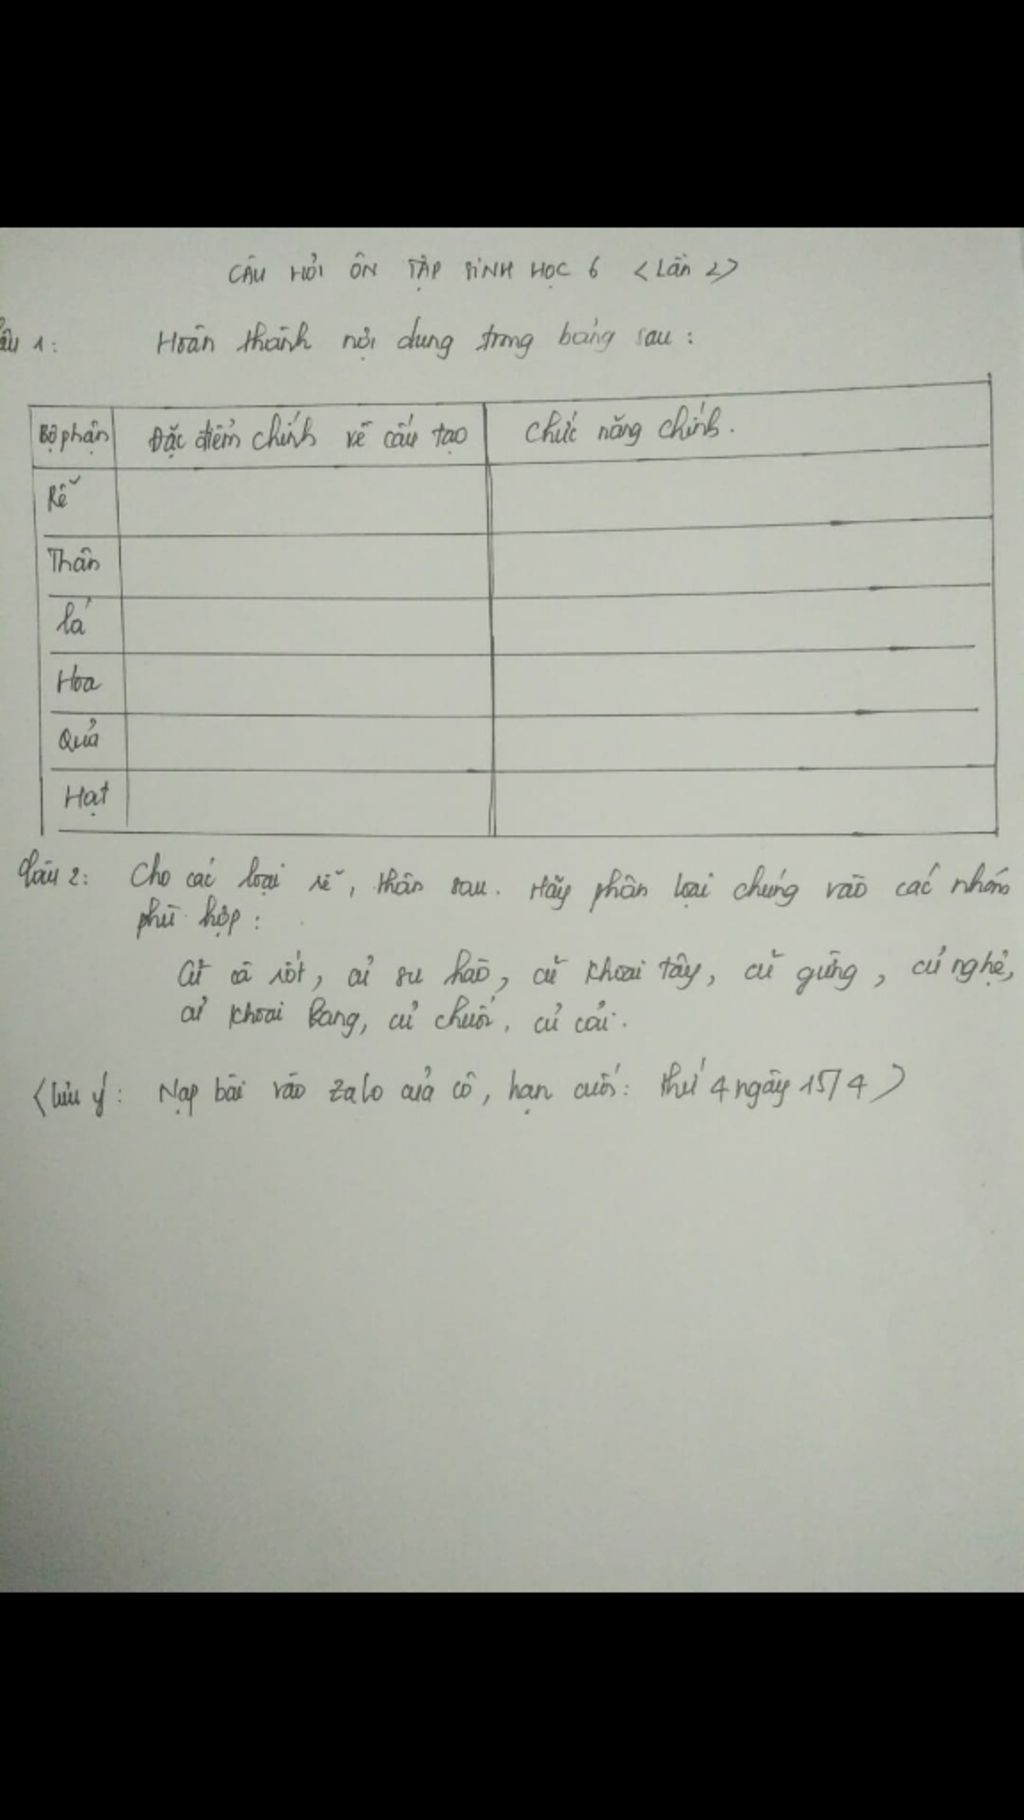 CÂU HỎI ÔN TẬP SINH HỌC 6 <Lần 2>
Câu 1: Hoàn thành nội dung trong bảng sau:
Bộ phận Đặc điểm chính về cấu tạo Chức năng chính.
Rễ
Thân
Lá
Hoa
Quả
Hạt
Câu 2: Cho các loại rễ, thân sau. Hãy phân loại chúng vào các nhóm
phù hợp:
Củ cà rốt, củ su hào, củ khoai tây, củ gừng, củ nghệ,
củ khoai lang, củ chuối, củ cải.
<Lưu ý: Nạp bài vào Zalo của cô, hạn cuối: thứ 4 ngày 15/4>